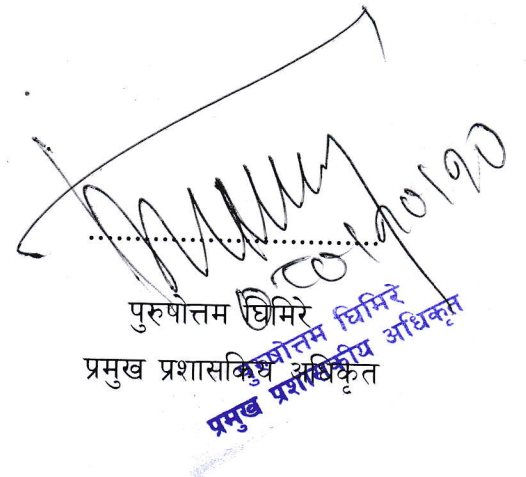 पुरुषोत्तम घिमिरे
प्रमुख प्रशासकिय अधिकृत
पुरुषोत्तम घिमिरे
प्रमुख प्रशासकीय अधिकृत